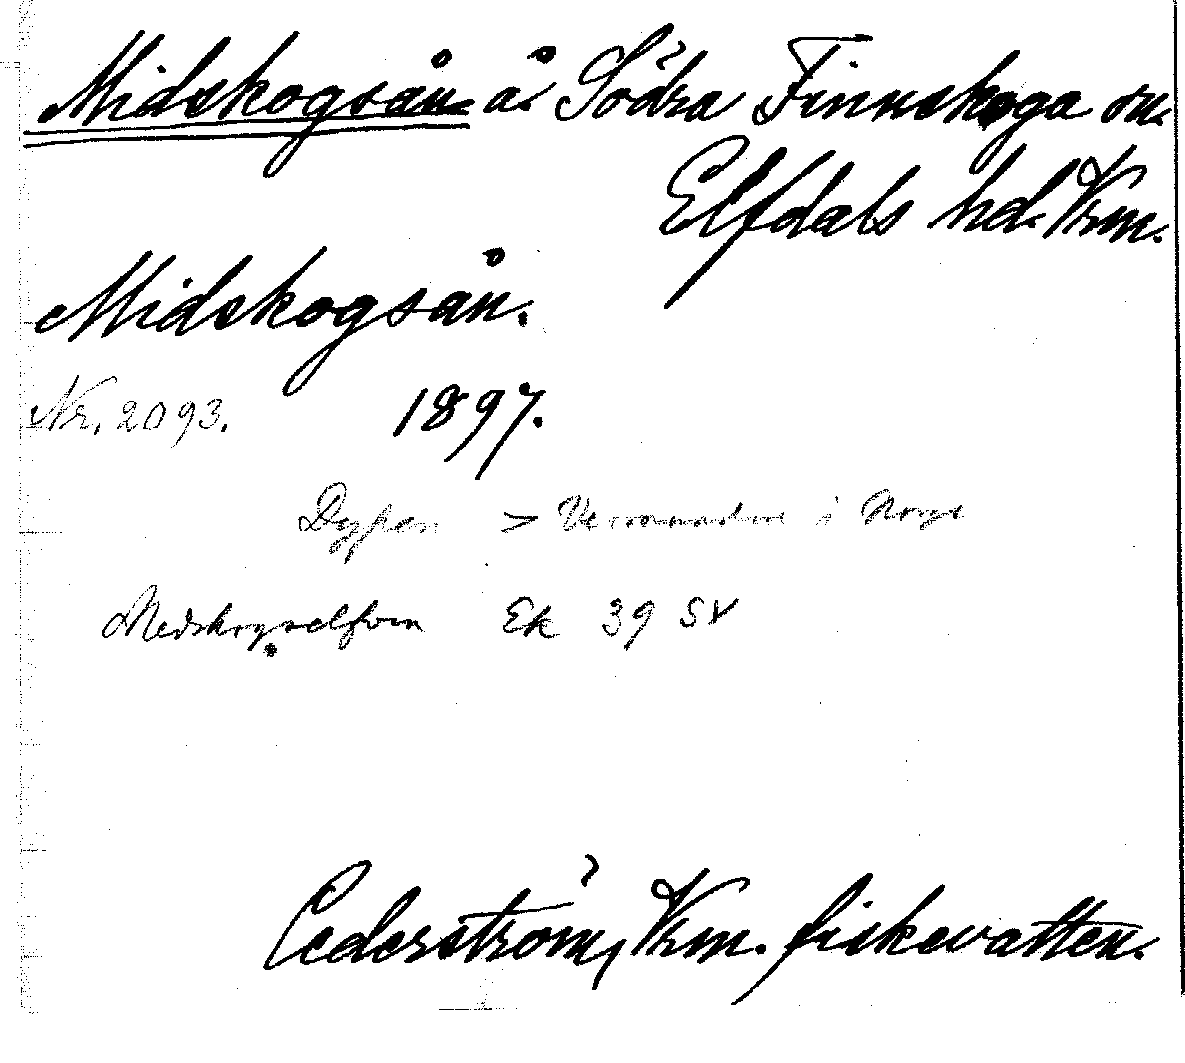 Midskogsån å Södra Finnskoga sn.
Elfdals hd. Vrm.
Midskogsån.
Nr. 2093. 1897.
Dypen > i Norge
Medskogselfven Ek 39 SV
Cederström, Vrm. fiskevatten.